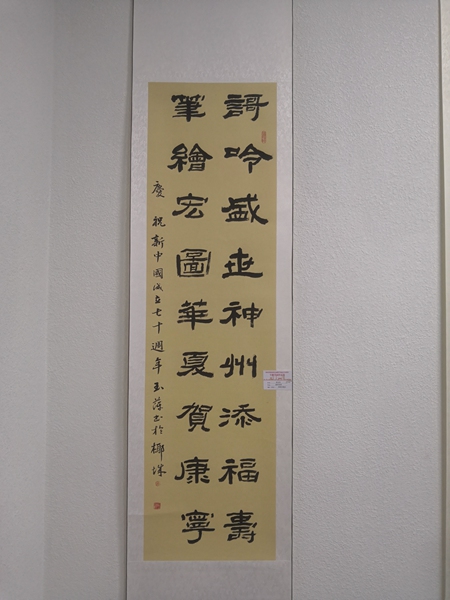 謌吟盛世神州添福壽
筆繪宏圖華夏賀康寧
慶祝新中國成立七十週年 玉萍书於椰城